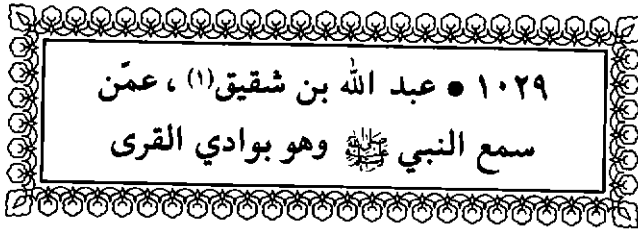 ١٠٢٩ ● عبد الله بن شقيق(١) ، عمّن
سمع النبي ﷺ وهو بوادي القرى